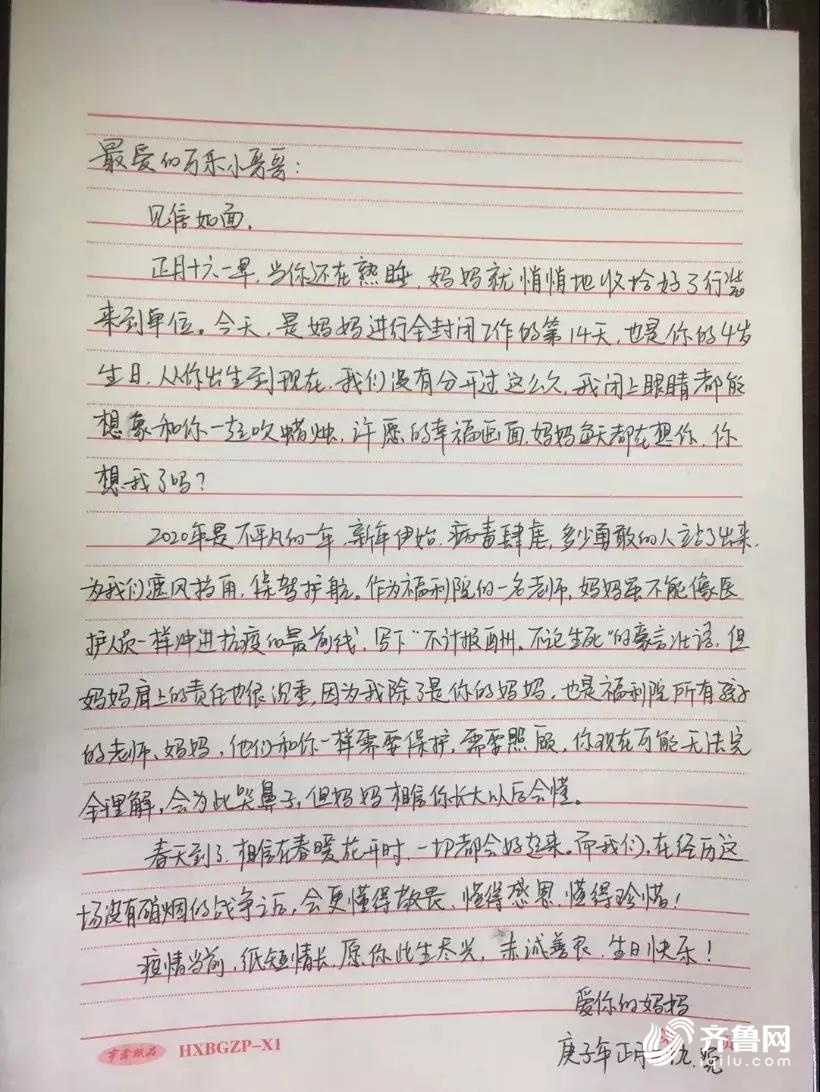 最爱的万乐小哥哥：
见信如面。
正月十六一早，当你还在熟睡，妈妈就悄悄地收拾好了行装
来到单位。今天，是妈妈进行全封闭工作的第14天，也是你的4岁
生日，从你出生到现在，我们没有分开过这么久，我闭上眼睛都能
想象和你一起吹蜡烛，许愿的幸福画面，妈妈每天都在想你，你
想我了吗？
2020年是不平凡的一年，新年伊始，病毒肆虐，多少勇敢的人站了出来，
为我们遮风挡雨，保驾护航。作为福利院的一名老师，妈妈虽不能像医
护人员一样冲进抗疫的最前线，写下"不计报酬。不论生死"的豪言壮语，但
妈妈肩上的责任也很沉重，因为我除了是你的妈妈，也是福利院所有孩子
的老师、妈妈，他们和你一样需要保护，需要照顾，你现在可能无法完
全理解，会为此哭鼻子，但妈妈相信你长大以后会懂。
春天到了，相信在春暖花开时，一切都会好起来。而我们，在经历这
场没有硝烟的战争之后，会更懂得敬畏、懂得感恩、懂得珍惜！
疫情当前，纸短情长，愿你此生尽兴，赤诚善良，生日快乐！
爱你的妈妈
庚子年正月
HXBGZP-X1
齐鲁网
iqilu.com